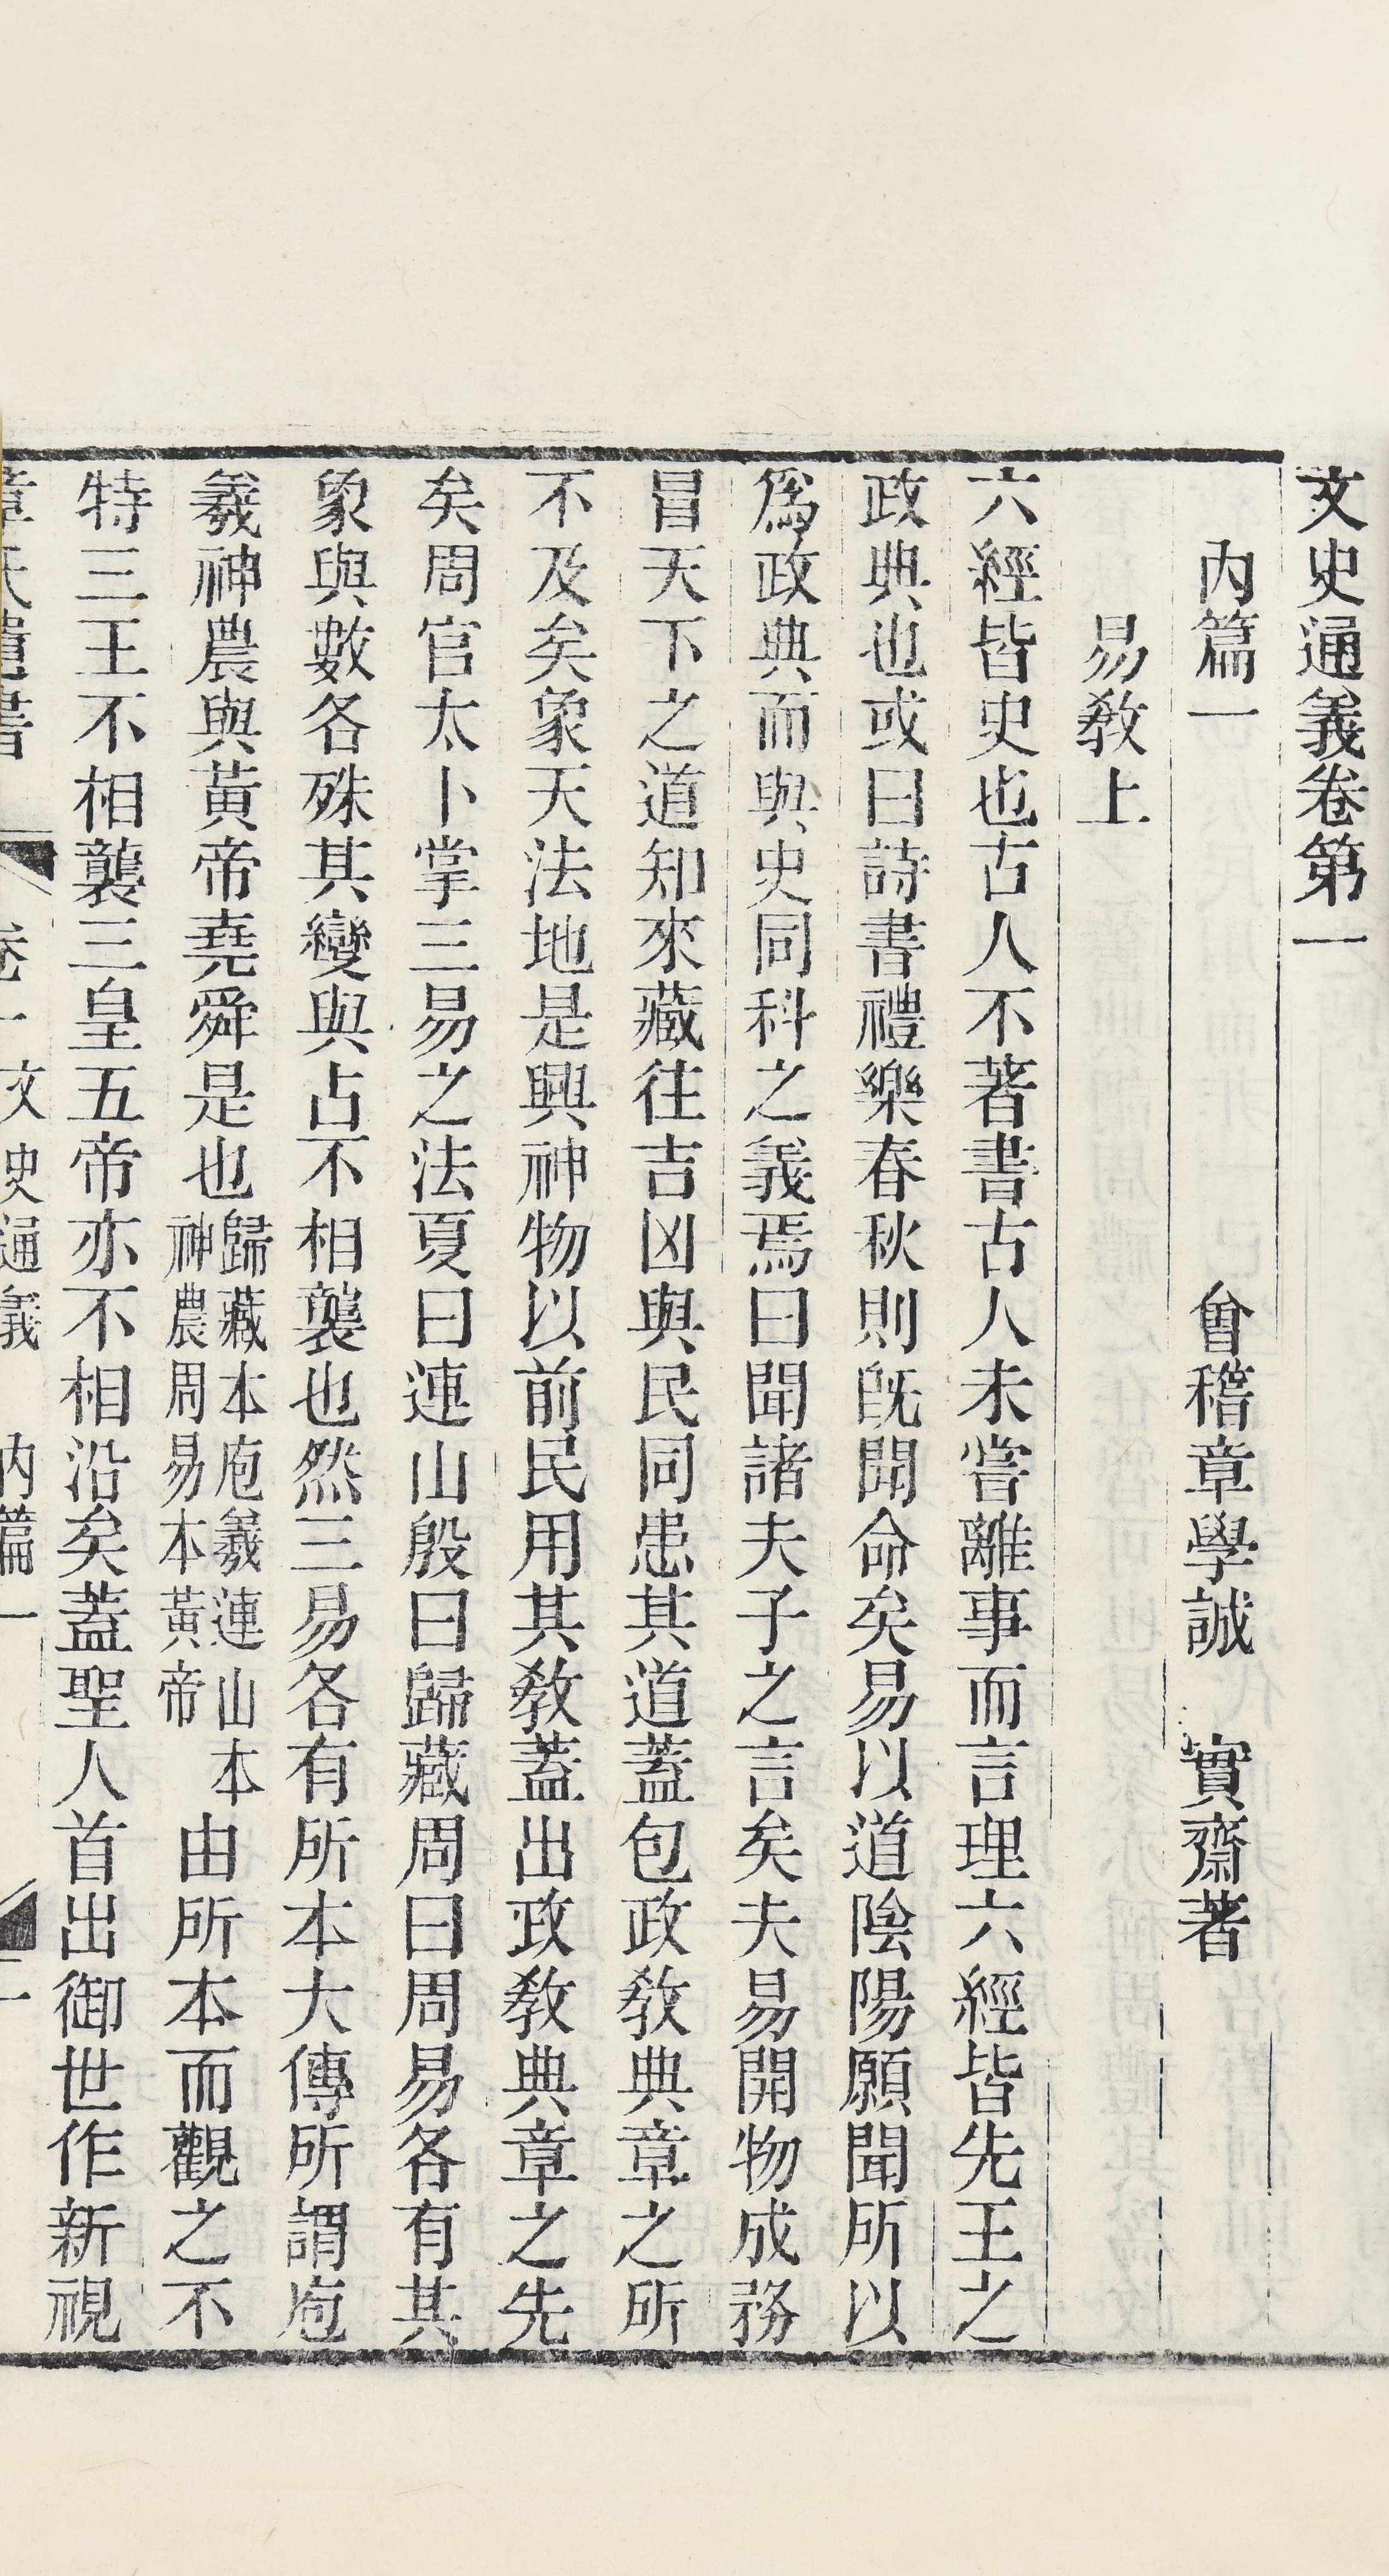 文史通義卷第一
內篇一　會稽章學誠　實齋著
易敎上
六經皆史也古人不著書古人未嘗離事而言理六經皆先王之
政典也或曰詩書禮樂春秋則旣聞命矣易以道陰陽願聞所以
爲政典而與史同科之義焉曰聞諸夫子之言矣夫易開物成務
冒天下之道知來藏往吉凶與民同患其道蓋包政敎典章之所
不及矣象天法地是興神物以前民用其敎蓋出政敎典章之先
矣周官太卜掌三易之法夏曰連山殷曰歸藏周曰周易各有其
象與數各殊其變與占不相襲也然三易各有所本大傳所謂庖
羲神農與黃帝堯舜是也歸藏本庖羲連山本神農周易本黃帝由所本而觀之不
特三王不相襲三皇五帝亦不相沿矣蓋聖人首出御世作新視
章氏遺書　卷一文史通義　內篇一　一